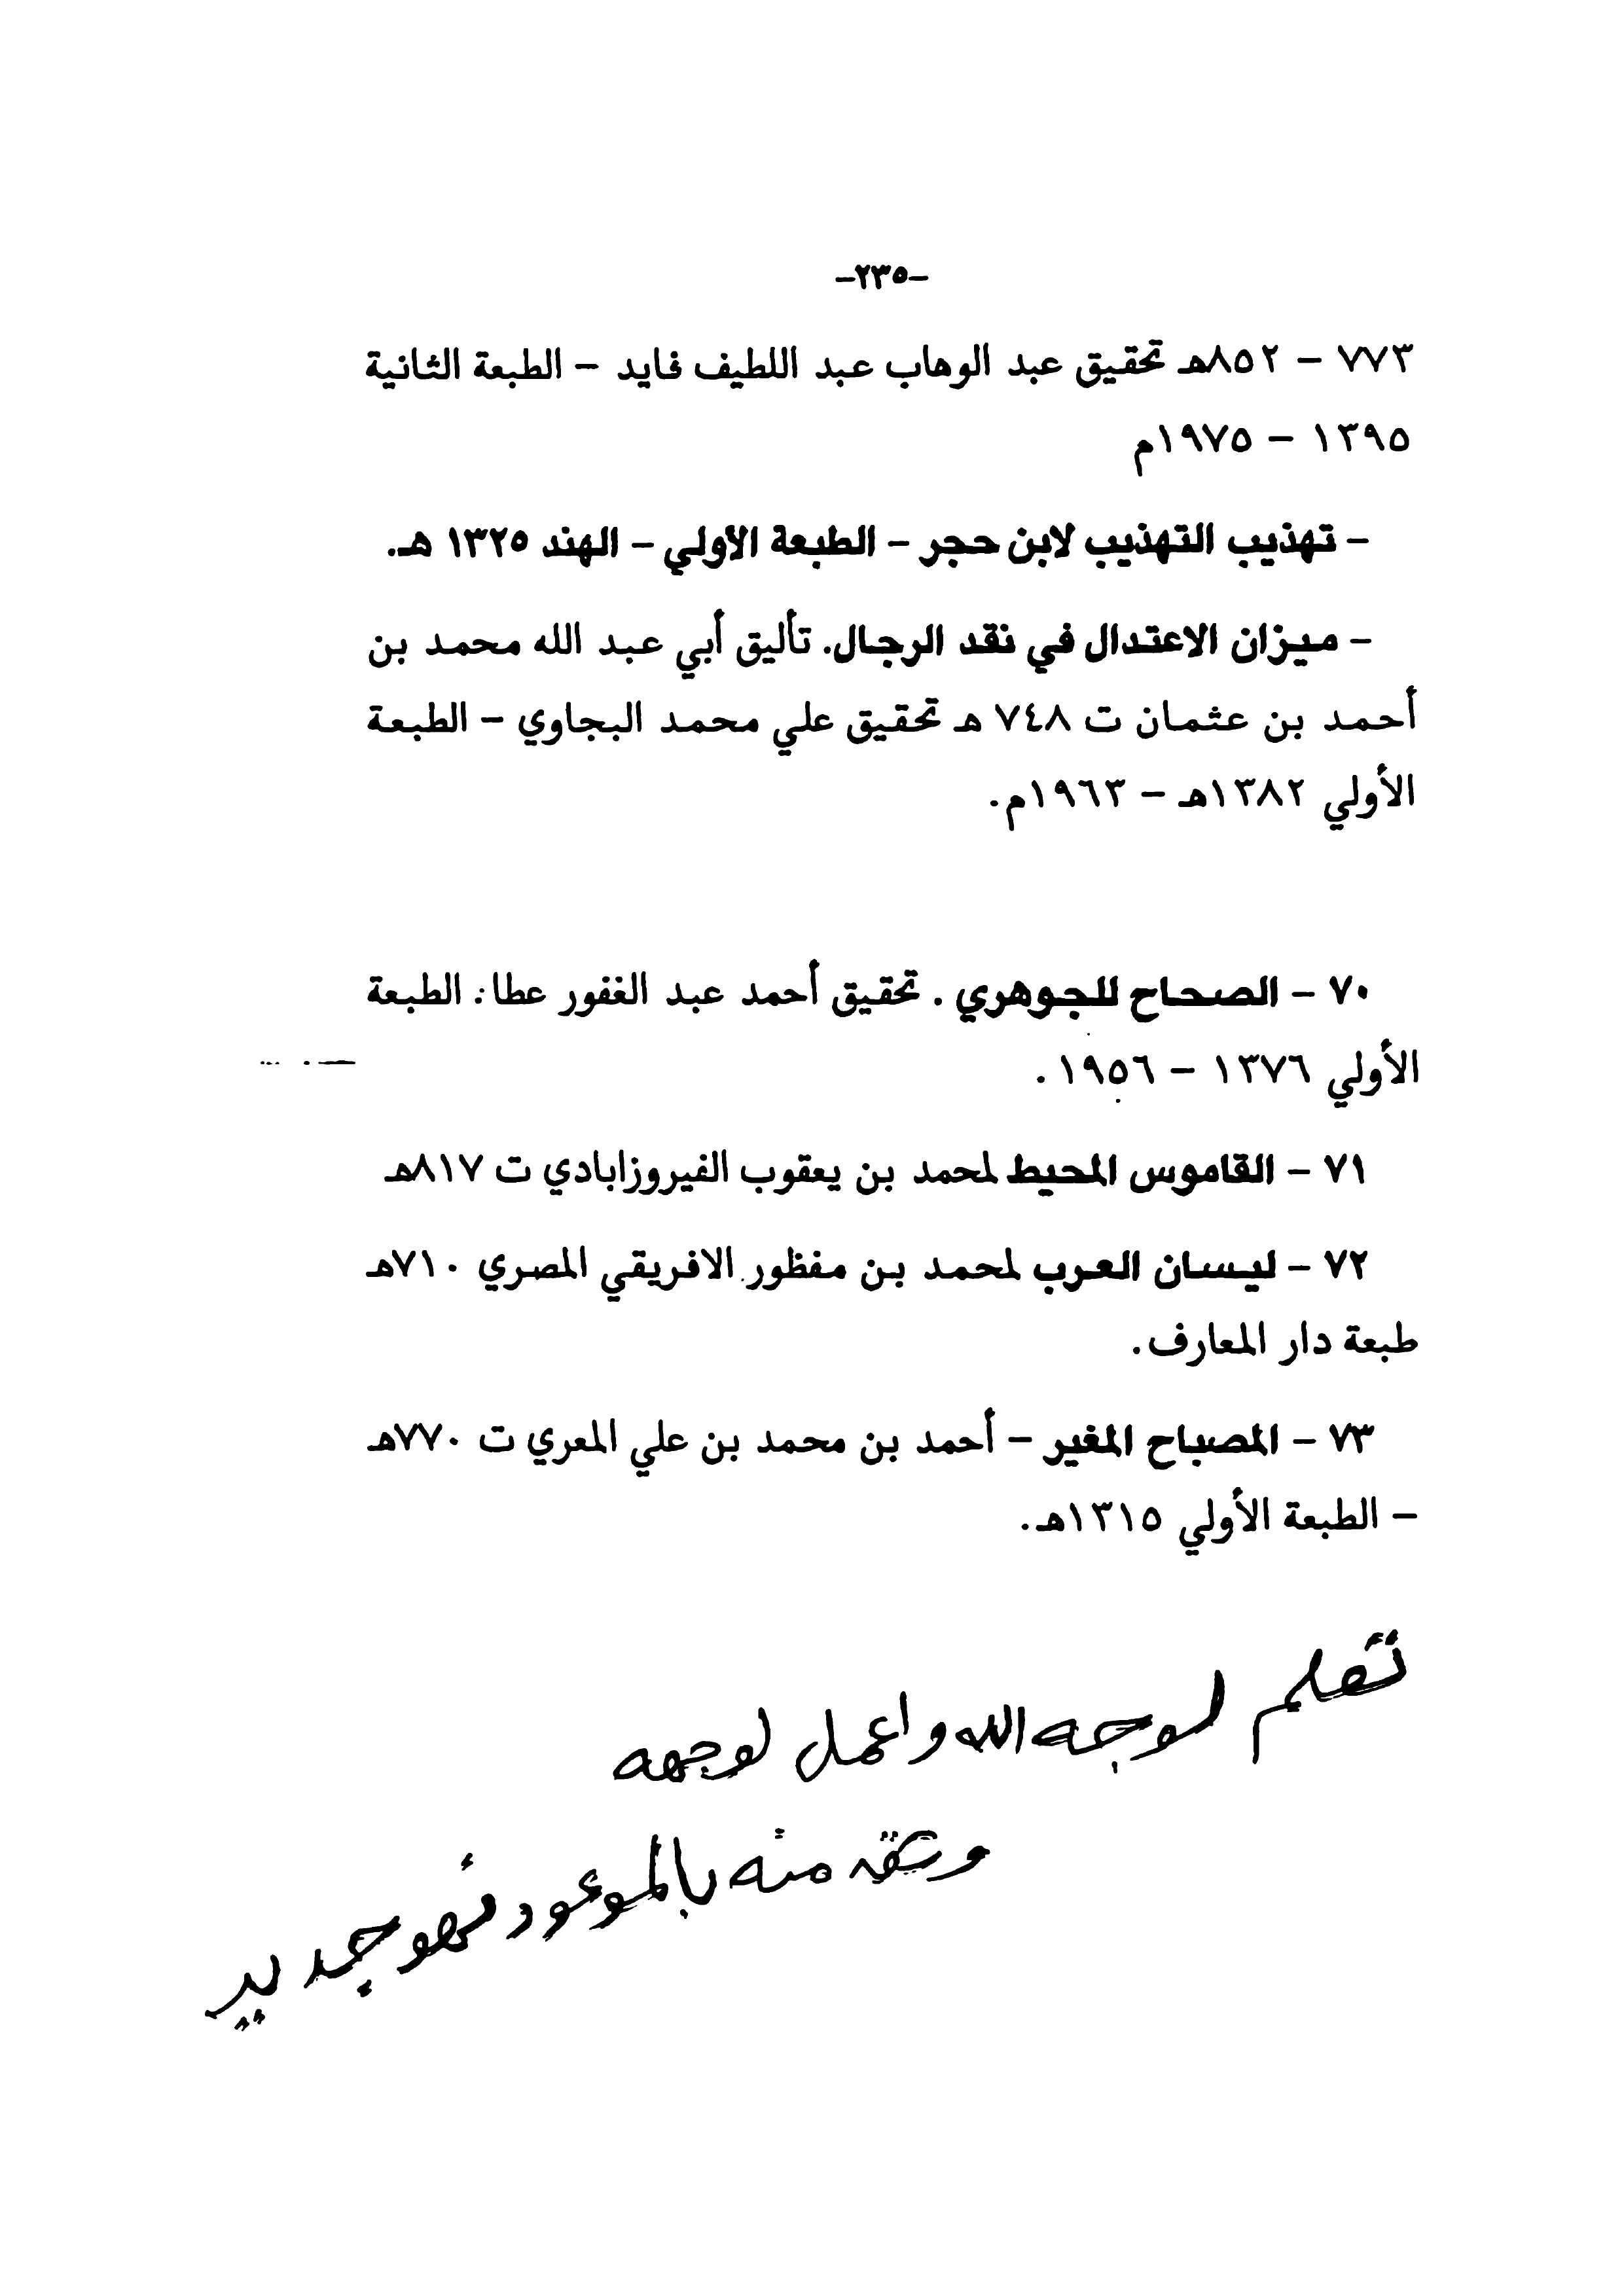 -٢٣٥-
٧٧٣ - ٨٥٢هـ تحقيق عبد الوهاب عبد اللطيف فايد - الطبعة الثانية
١٣٩٥ - ١٩٧٥م
- تهذيب التهذيب لابن حجر - الطبعة الأولي - الهند ١٣٢٥ هـ.
- ميزان الاعتدال في نقد الرجال. تأليق أبي عبد الله محمد بن
أحمد بن عثمان ت ٧٤٨ هـ تحقيق علي محمد البجاوي - الطبعة
الأولي ١٣٨٢هـ - ١٩٦٣م.
٧٠ - الصحاح للجوهري . تحقيق أحمد عبد الغفور عطا: الطبعة
الأولي ١٣٧٦ - ١٩٥٦ .
٧١ - القاموس المحيط لمحمد بن يعقوب الفيروزابادي ت ٨١٧هـ
٧٢ - ليسان العرب لمحمد بن مفظور الافريقي المصري ٧١٠هـ
طبعة دار المعارف.
٧٣ - المصباح المغير - أحمد بن محمد بن علي المعري ت ٧٧٠هـ
- الطبعة الأولي ١٣١٥هـ.
تعلم لوجه الله واعمل لوجهه
وثق منه بالموعود فهو جدير